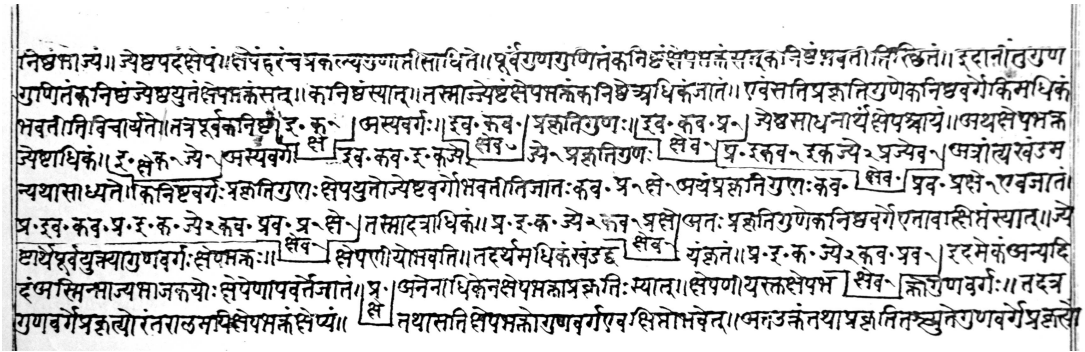 निष्ठंभाज्यं॥ज्येष्ठपदंक्षेपं॥क्षेपंहरंचप्रकल्प्यगुणाप्तीसाधिते॥पूर्वगुणगुणितंकनिष्ठंक्षेपभक्तंसत्कनिष्ठंभवतीतिस्थितं॥इदानींतुगुण
गुणितंकनिष्ठंज्येष्ठयुतंक्षेपभक्तंसत्॥कनिष्ठंस्यात्॥तस्माज्येष्ठंक्षेपभक्तंकनिष्ठेअधिकंजातं॥एवंसतिप्रकृतिगुणेकनिष्ठवर्गेकिमधिकं
भवतीतिविचार्यते॥तत्रपूर्वकनिष्ठं इ॰क॰१ क्षे अस्यवर्गः॥ इव॰कव॰१ क्षेव१ प्रकृतिगुणः॥ इव॰कव॰प्र१ क्षेव१ ज्येष्ठसाधनार्थंक्षेपश्चायं॥अथक्षेपभक्त
ज्येष्टाधिकं॥ इ॰क॰ज्ये१ क्षे अस्यवर्गो इव॰कव॰इ॰कज्ये ज्ये१ प्रकृतिगुणः प्र॰इकव१इकज्ये२प्रज्येव१ क्षेव१ अत्रांत्यखंडम
न्यथासाध्यते॥कनिष्टवर्गः प्रकृतिगुणः क्षेपयुतोज्येष्टवर्गोभवतीतिजातः कव॰प्र१क्षे१अयंप्रकृतिगुणः कव॰ प्रव॰प्रक्षे१एवंजातं॥
प्र॰इव॰कव॰प्र॰इ॰क॰ज्ये२कव॰प्रव॰प्र१क्षे१ क्षेव१ तस्मादत्राधिकं॥प्र॰इ॰क॰ज्ये२कव१प्रक्षे क्षेव१ अतः प्रकृतिगुणेकनिष्ठवर्गेएतावत्क्षिप्तंस्यात्॥ज्ये
ष्टार्थंपूर्वयुक्त्यागुणवर्गः क्षेपभक्तः॥ क्षेपणीयोभवति॥तदर्थमधिकंखंडद्व यंकृतं॥प्र॰इ॰क॰ज्ये२कव॰प्रव१ क्षेव१ इदमेकंअन्यदि
दंअस्मिन्भाज्यभाजकयोः क्षेपेणापवर्तेजातं॥ प्र१ क्षे अनेनाधिकेनक्षेपभक्ताप्रकृतिः स्यात्॥क्षेपणीयस्तक्षेपभ क्तोगुणवर्गः॥तदत्र
गुणवर्गप्रकृत्योरंतरालमपिक्षेपभक्तंक्षेप्यं॥ तथासतिक्षेपभक्तोगुणवर्गएवक्षिप्तोभवेत्॥अतउक्तंतथाप्रकृतितश्च्युतेगुणवर्गेप्रकृत्यो